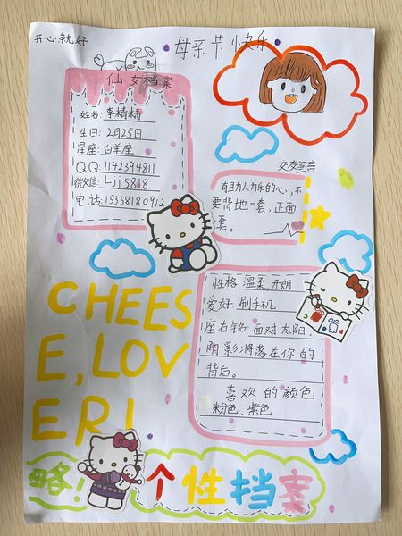 开心就好
母亲节快乐
仙女档案
姓名:李精精
生日:2月25日
星座:白羊座
QQ:1142394811
微信:Ljj5818
电话:
交友宣言
有助人为乐的心,不
要背地一套,正面
一套。
性格 温柔 开朗
爱好 刷手机
座右铭 面对太阳,
阴影将落在你的
背后。
喜欢的颜色
粉色、紫色
CHEES
E,LOV
ER!
略!
个性挡案